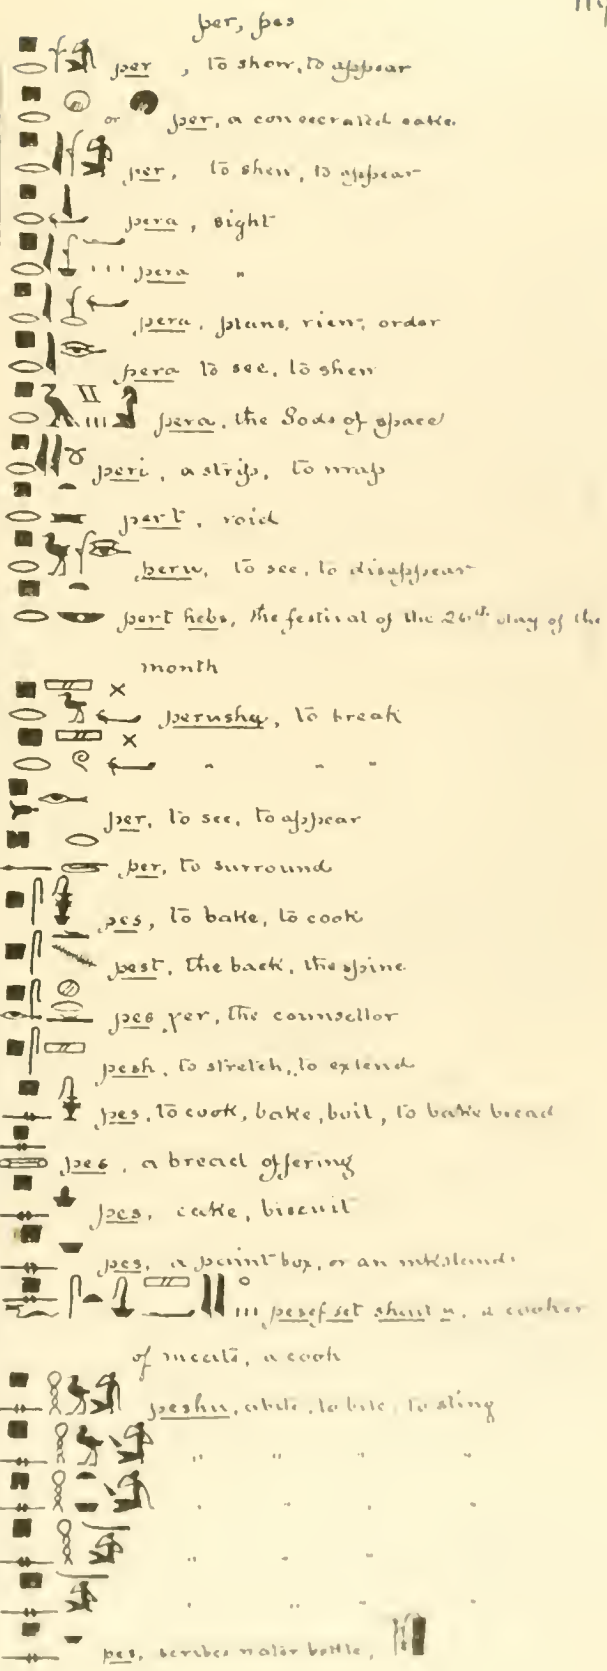 per, pes
per , to show, to appear
or per, a consecrated cake.
per, to shew, to appear
pera, sight
pera "
pera, plans, view, order
pera to see, to shew
pera, the Gods of space
peri, a strip, to wrap
pert, void
peru, to see, to disappear
pert hebs, the festival of the 26th day of the
month
perusha, to break
" " "
per, to see, to appear
per, to surround
pes, to bake, to cook
pest, the back, the spine
pes yer, the counsellor
pesh, to stretch, to extend
pes, to cook, bake, boil, to bake bread
pes, a bread offering
pes, cake, biscuit
pes, a paint box, or an inkstand.
pesef set shait u, a cooker
of meats, a cook
peshu, a bite, to bite, to sting
" " " "
" " " "
" " "
" " " "
pes, scribes water bottle,